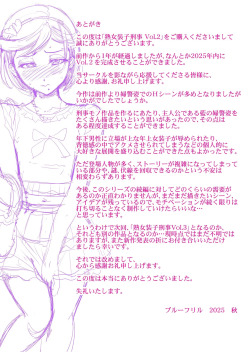 あとがき
この度は「熟女装子刑事 Vol.2」をご購入くださいまして
誠にありがとうございます。
前作から1年が経過しましたが、なんとか2025年内に
Vol.2を完成させることができました。
当サークルを影ながら応援してくださる皆様に、
心より感謝、お礼申し上げます。
今作は前作より婦警姿でのHシーンが多めとなりましたが
いかがでしたでしょうか。
刑事モノ作品を作るにあたり、主人公である藍の婦警姿を
たくさん描きたいという思いがあったので、その点は
ある程度達成することができました。
年下男性に立場が上な年上女装子が辱められたり、
背徳感の中でアクメさせられてしまうなどの個人的に
大好きな展開を盛り込むことができた点もよかったです。
ただ登場人物が多く、ストーリーが複雑になってしまって
いる部分や、謎、伏線を回収できるのかという不安は
相変わらずあります。
今後、このシリーズの続編に対してどのくらいの需要が
あるのか正直わかりませんが、まだまだ描きたいシーン、
アイデアが残っているので、モチベーションが続く限りは
打ち切ることなく制作していけたらいいな…
と思っています。
というわけで次回、「熟女装子刑事Vol.3」となるのか、
それとも別の作品となるのか…現時点ではまだ不明では
ありますが、また新作発表の折にお付き合いいただけ
ましたら幸いです。
それでは改めまして、
心から感謝のお礼申し上げます。
この度は本当にありがとうございました。
失礼いたします。
ブルーフリル　2025　秋